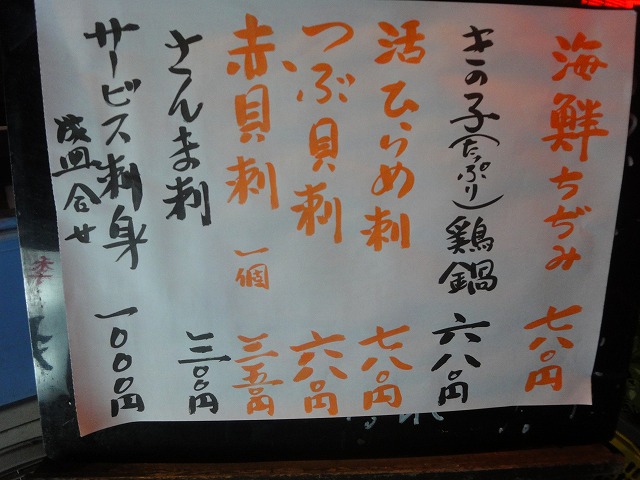 海鮮ちぢみ 七八〇円
きの子(たっぷり)鶏鍋 六八〇円
活ひらめ刺 七八〇円
つぶ貝刺 六八〇円
赤貝刺 一個 三五〇円
さんま刺 三三〇円
サービス刺身 一〇〇〇円
盛合せ